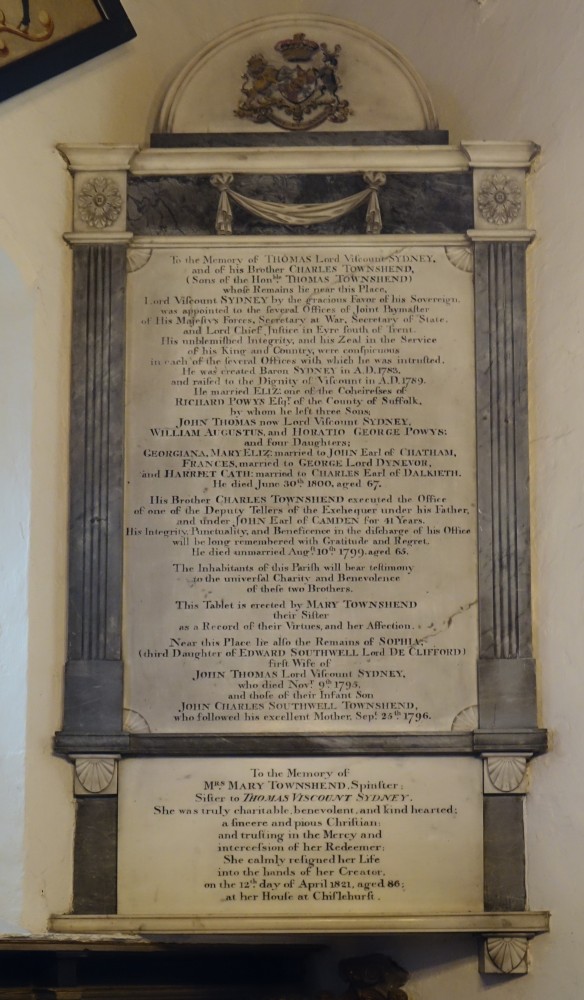 To the Memory of THOMAS Lord Viſcount SYDNEY,
and of his Brother CHARLES TOWNSHEND,
(Sons of the Honble THOMAS TOWNSHEND)
whoſe Remains lie near this Place,
Lord Viſcount SYDNEY by the gracious Favor of his Sovereign
was appointed to the ſeveral Offices of Joint Paymaſter
of His Majeſtys Forces, Secretary at War, Secretary of State,
and Lord Chief Juſtice in Eyre ſouth of Trent.
His unblemiſhed Integrity, and his Zeal in the Service
of his King and Country, were conſpicuous
in each of the ſeveral Offices with which he was intruſted.
He was created Baron SYDNEY in A.D. 1783,
and raiſed to the Dignity of Viſcount in A.D. 1789.
He married ELIZ: one of the Coheireſſes of
RICHARD POWYS Eſqr. of the County of Suffolk,
by whom he left three Sons;
JOHN THOMAS now Lord Viſcount SYDNEY,
WILLIAM AUGUSTUS, and HORATIO GEORGE POWYS:
and four Daughters;
GEORGIANA, MARY ELIZ: married to JOHN Earl of CHATHAM,
FRANCES, married to GEORGE Lord DYNEVOR,
and HARRIET CATH: married to CHARLES Earl of DALKEITH.
He died June 30th 1800, aged 67.
His Brother CHARLES TOWNSHEND executed the Office
of one of the Deputy Tellers of the Exchequer under his Father,
and under JOHN Earl of CAMDEN for 41 Years.
His Integrity, Punctuality, and Beneficence in the diſcharge of his Office
will be long remembered with Gratitude and Regret.
He died unmarried Augſt 10th 1799, aged 65.
The Inhabitants of this Pariſh will bear teſtimony
to the univerſal Charity and Benevolence
of theſe two Brothers.
This Tablet is erected by MARY TOWNSHEND
their Siſter
as a Record of their Virtues, and her Affection.
Near this Place lie alſo the Remains of SOPHIA,
(third Daughter of EDWARD SOUTHWELL Lord DE CLIFFORD)
firſt Wife of
JOHN THOMAS Lord Viſcount SYDNEY,
who died Novr. 9th 1795,
and thoſe of their Infant Son
JOHN CHARLES SOUTHWELL TOWNSHEND,
who followed his excellent Mother, Sept. 25th 1796.
To the Memory of
Mrs MARY TOWNSHEND, Spinſter;
Siſter to THOMAS VISCOUNT SYDNEY.
She was truly charitable, benevolent, and kind hearted;
a ſincere and pious Chriſtian;
and truſting in the Mercy and
interceſsion of her Redeemer;
She calmly reſigned her Life
into the hands of her Creator,
on the 12th day of April 1821, aged 86;
at her Houſe at Chiſlehurſt.